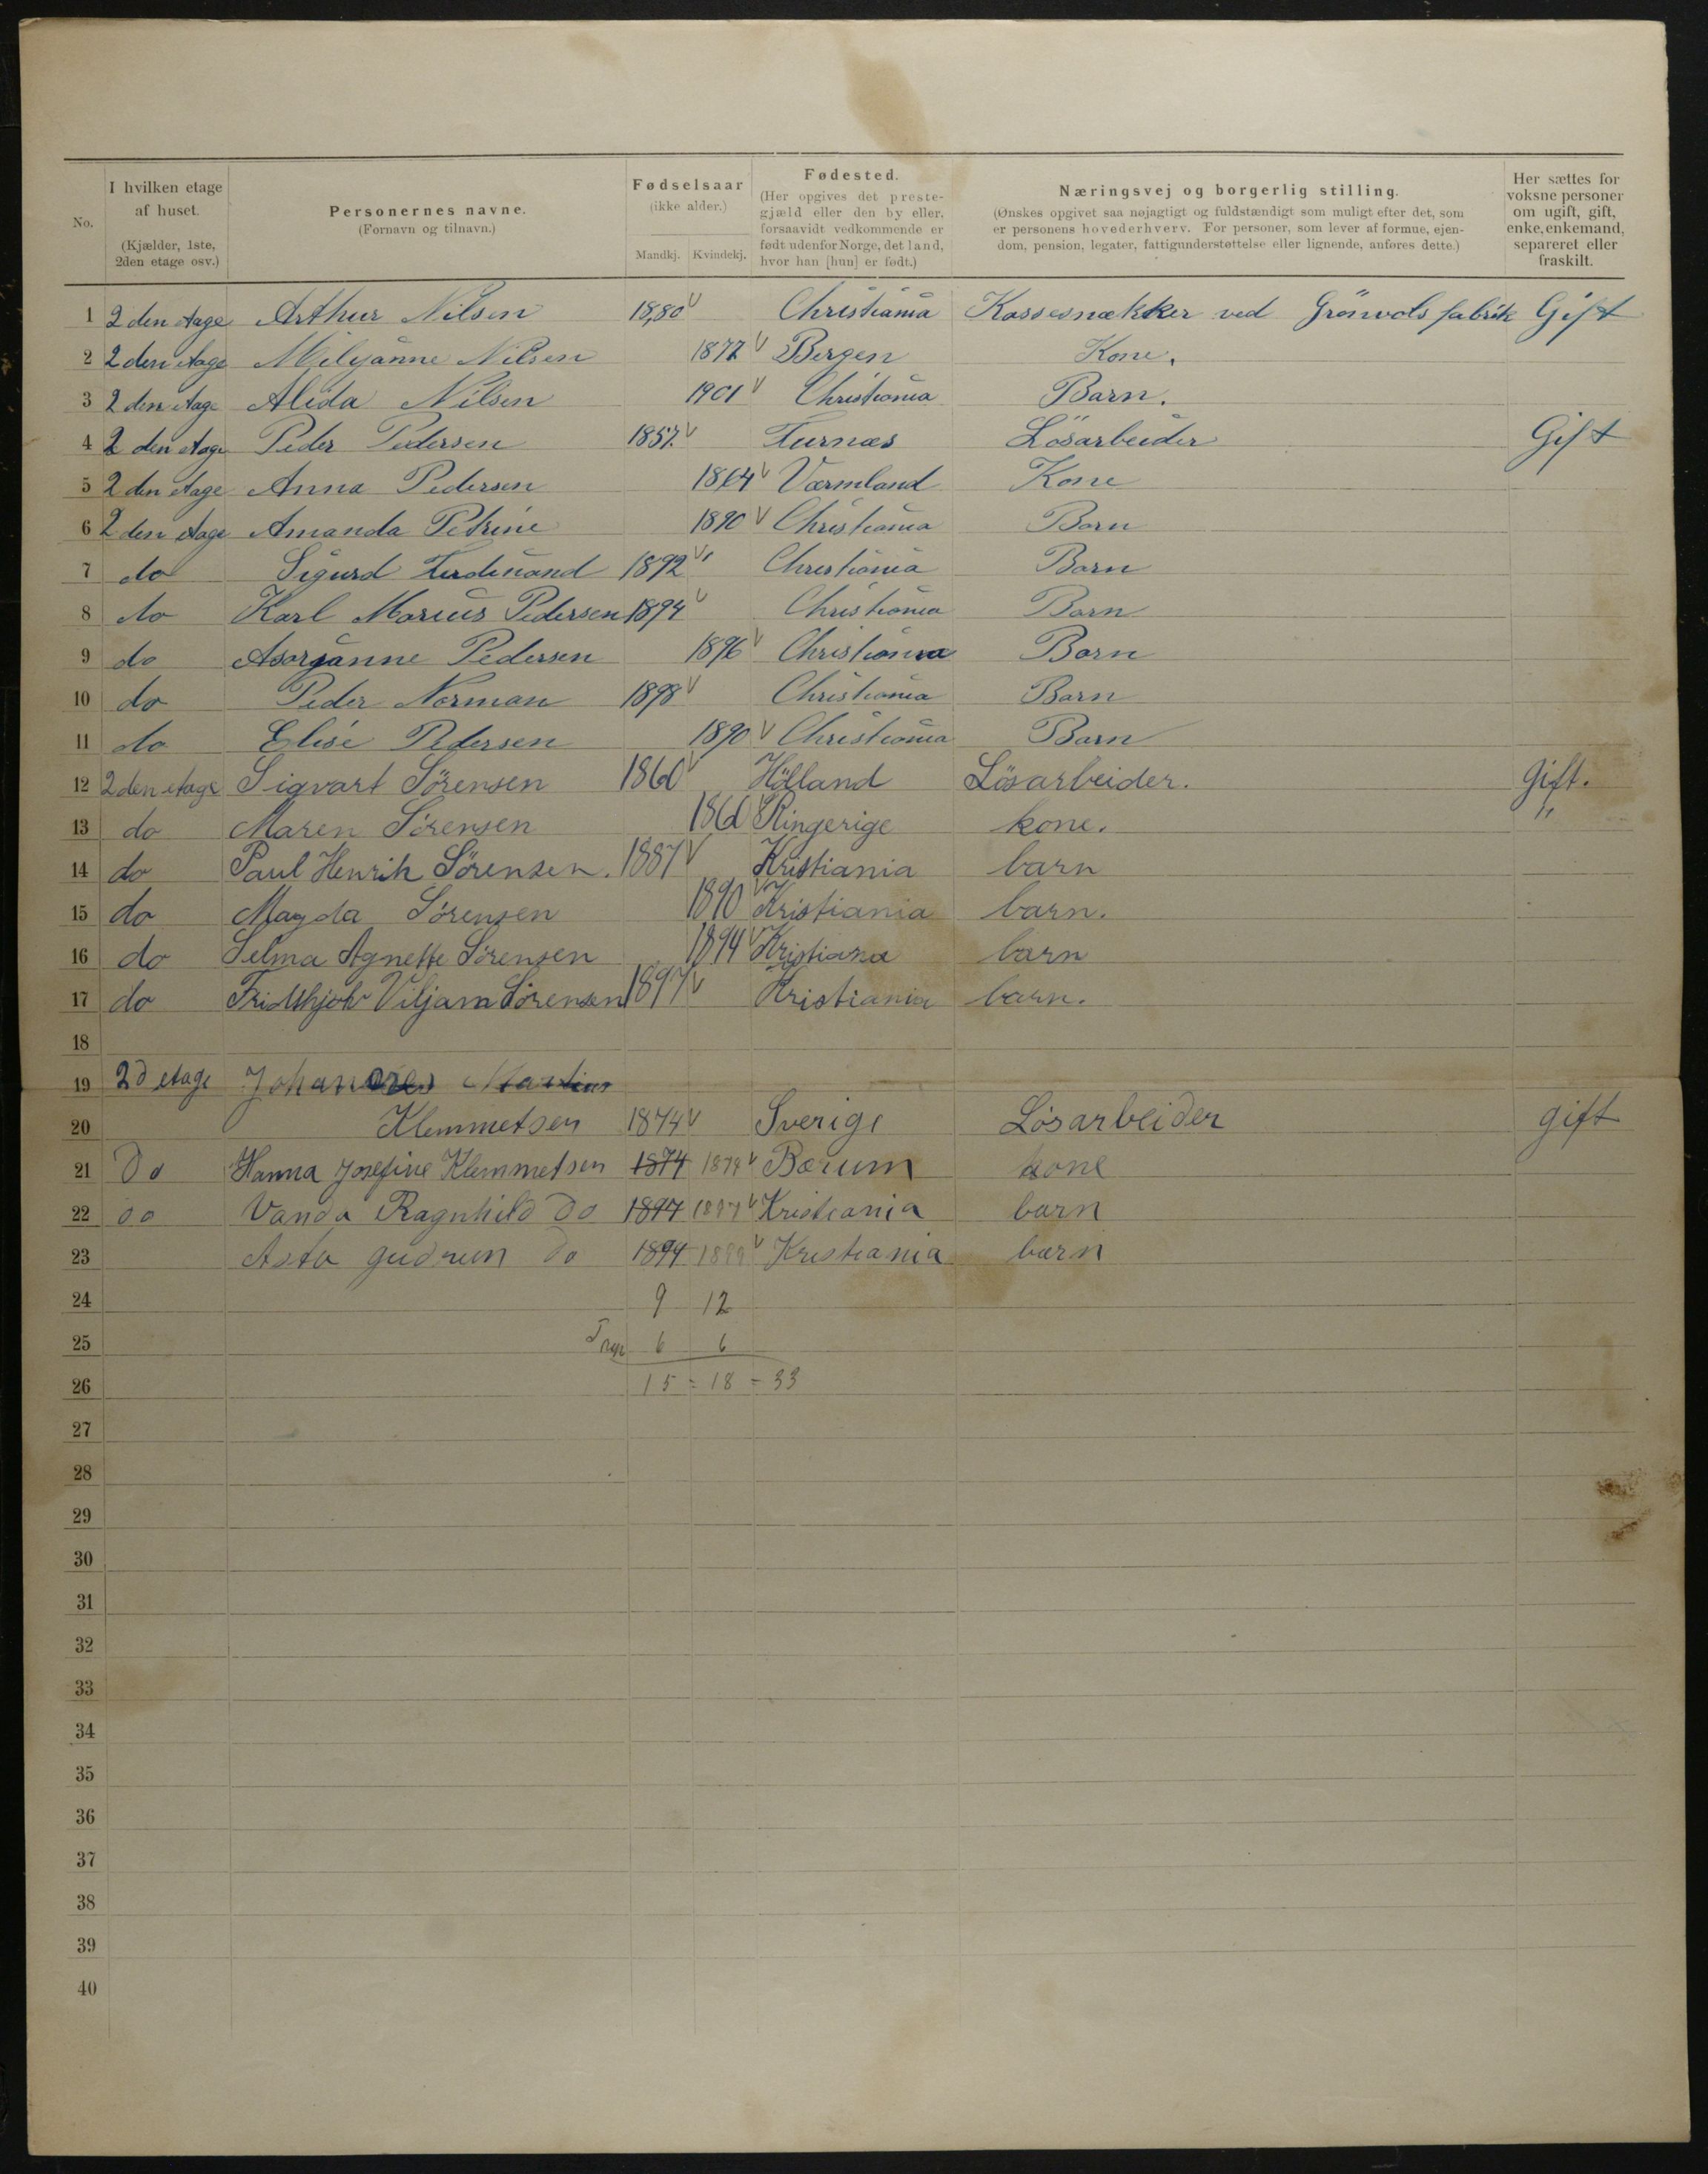 No.
I hvilken etage af huset. (Kjælder, 1ste, 2den etage osv.)
Personernes navne. (Fornavn og tilnavn.)
Fødselsaar (ikke alder.) Mandkj. Kvindekj.
Fødested. (Her opgives det prestegjæld eller den by eller, forsaavidt vedkommende er født udenfor Norge, det land, hvor han [hun] er født.)
Næringsvej og borgerlig stilling. (Ønskes opgivet saa nøjagtigt og fuldstændigt som muligt efter det, som er personens hovederhverv. For personer, som lever af formue, ejendom, pension, legater, fattigunderstøttelse eller lignende, anføres dette.)
Her sættes for voksne personer om ugift, gift, enke, enkemand, separeret eller fraskilt.
1 2 den etage Arthur Nilsen 1880 Christiania Kassesnækker ved Grönvols fabrik Gift
2 2 den etage Milyanne Nilsen 1877 Bergen Kone.
3 2 den etage Alida Nilsen 1901 Christiania Barn.
4 2 den etage Peder Pedersen 1857. Furnæs Lösarbeider Gift
5 2 den etage Anna Pedersen 1864 Værmland Kone
6 2 den etage Amanda Petrine 1890 Christiania Barn
7 do Sigurd Ferdinand 1892 Christiania Barn
8 do Karl Marius Pedersen 1894 Christiania Barn
9 do Asorganne Pedersen 1896 Christiania Barn
10 do Peder Norman 1898 Christiania Barn
11 do Elise Pedersen 1890 Christiania Barn
12 2 den etage Sigvart Sörensen 1860 Hölland Lösarbeider. Gift.
13 do Maren Sörensen 1860 Ringerige kone. "
14 do Paul Henrik Sörensen. 1887 Kristiania barn
15 do Magda Sörensen 1890 Kristiania barn.
16 do Selma Agnette Sörensen 1894 Kristiana barn
17 do Fridthjob Viljam Sörensen 1897 Kristiania barn.
18
19 2d etage Johannes Martius
20 Klemmetsen 1874 Sverige Lösarbeider gift
21 Do Hanna Josefine Klemmetsen 1874 1879 Bærum kone
22 do Vanda Ragnhild Do 1897 1897 Kristiania barn
23 Asta gudrun Do 1894 1899 Kristiania barn
24 9 12
25 6 6
26 15 = 18 = 33
27
28
29
30
31
32
33
34
35
36
37
38
39
40